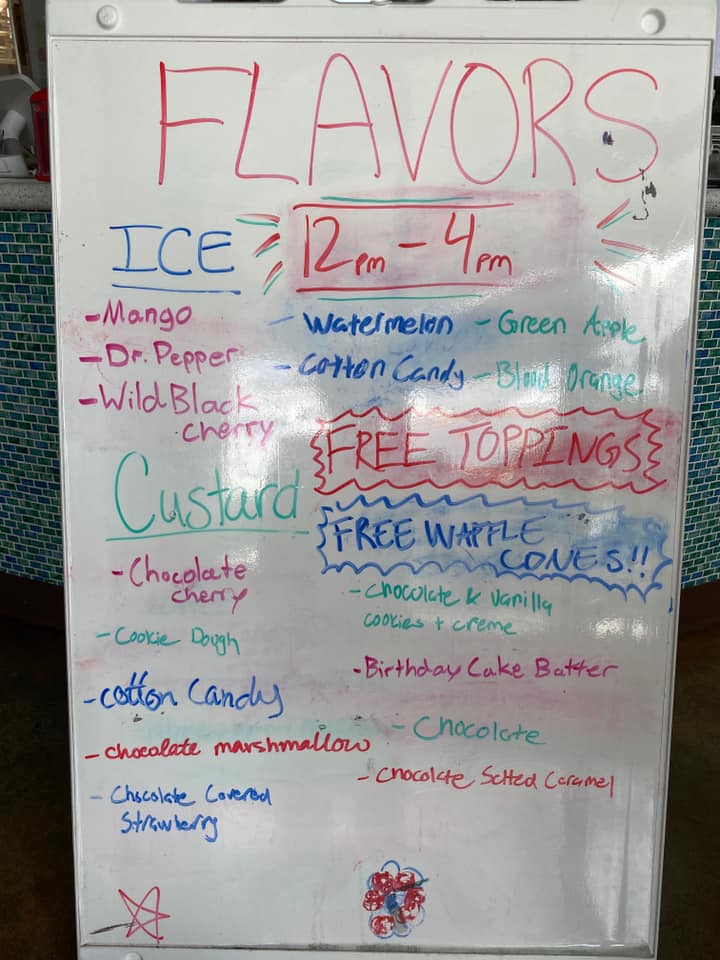 FLAVORS
ICE
12pm - 4pm
- Mango
- Dr. Pepper
- Wild Black
cherry
- Watermelon
- Cotton Candy
- Green Apple
- Blood Orange
FREE TOPPINGS
FREE WAFFLE
CONES!!
Custard
- Chocolate
cherry
- Cookie Dough
- Cotton Candy
- chocolate marshmallow
- Chocolate Covered
Strawberry
- Chocolate & Vanilla
cookies + creme
- Birthday Cake Batter
- Chocolate
- Chocolate Salted Caramel